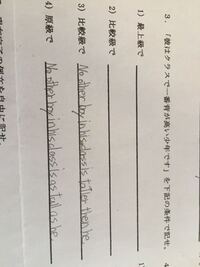 3. 「彼はクラスで一番背が高い少年です」を下記の条件で記せ。
1) 最上級で
2) 比較級で
3) 比較級で No other boy in his class is taller than he.
4) 原級で No other boy in his class is as tall as he.